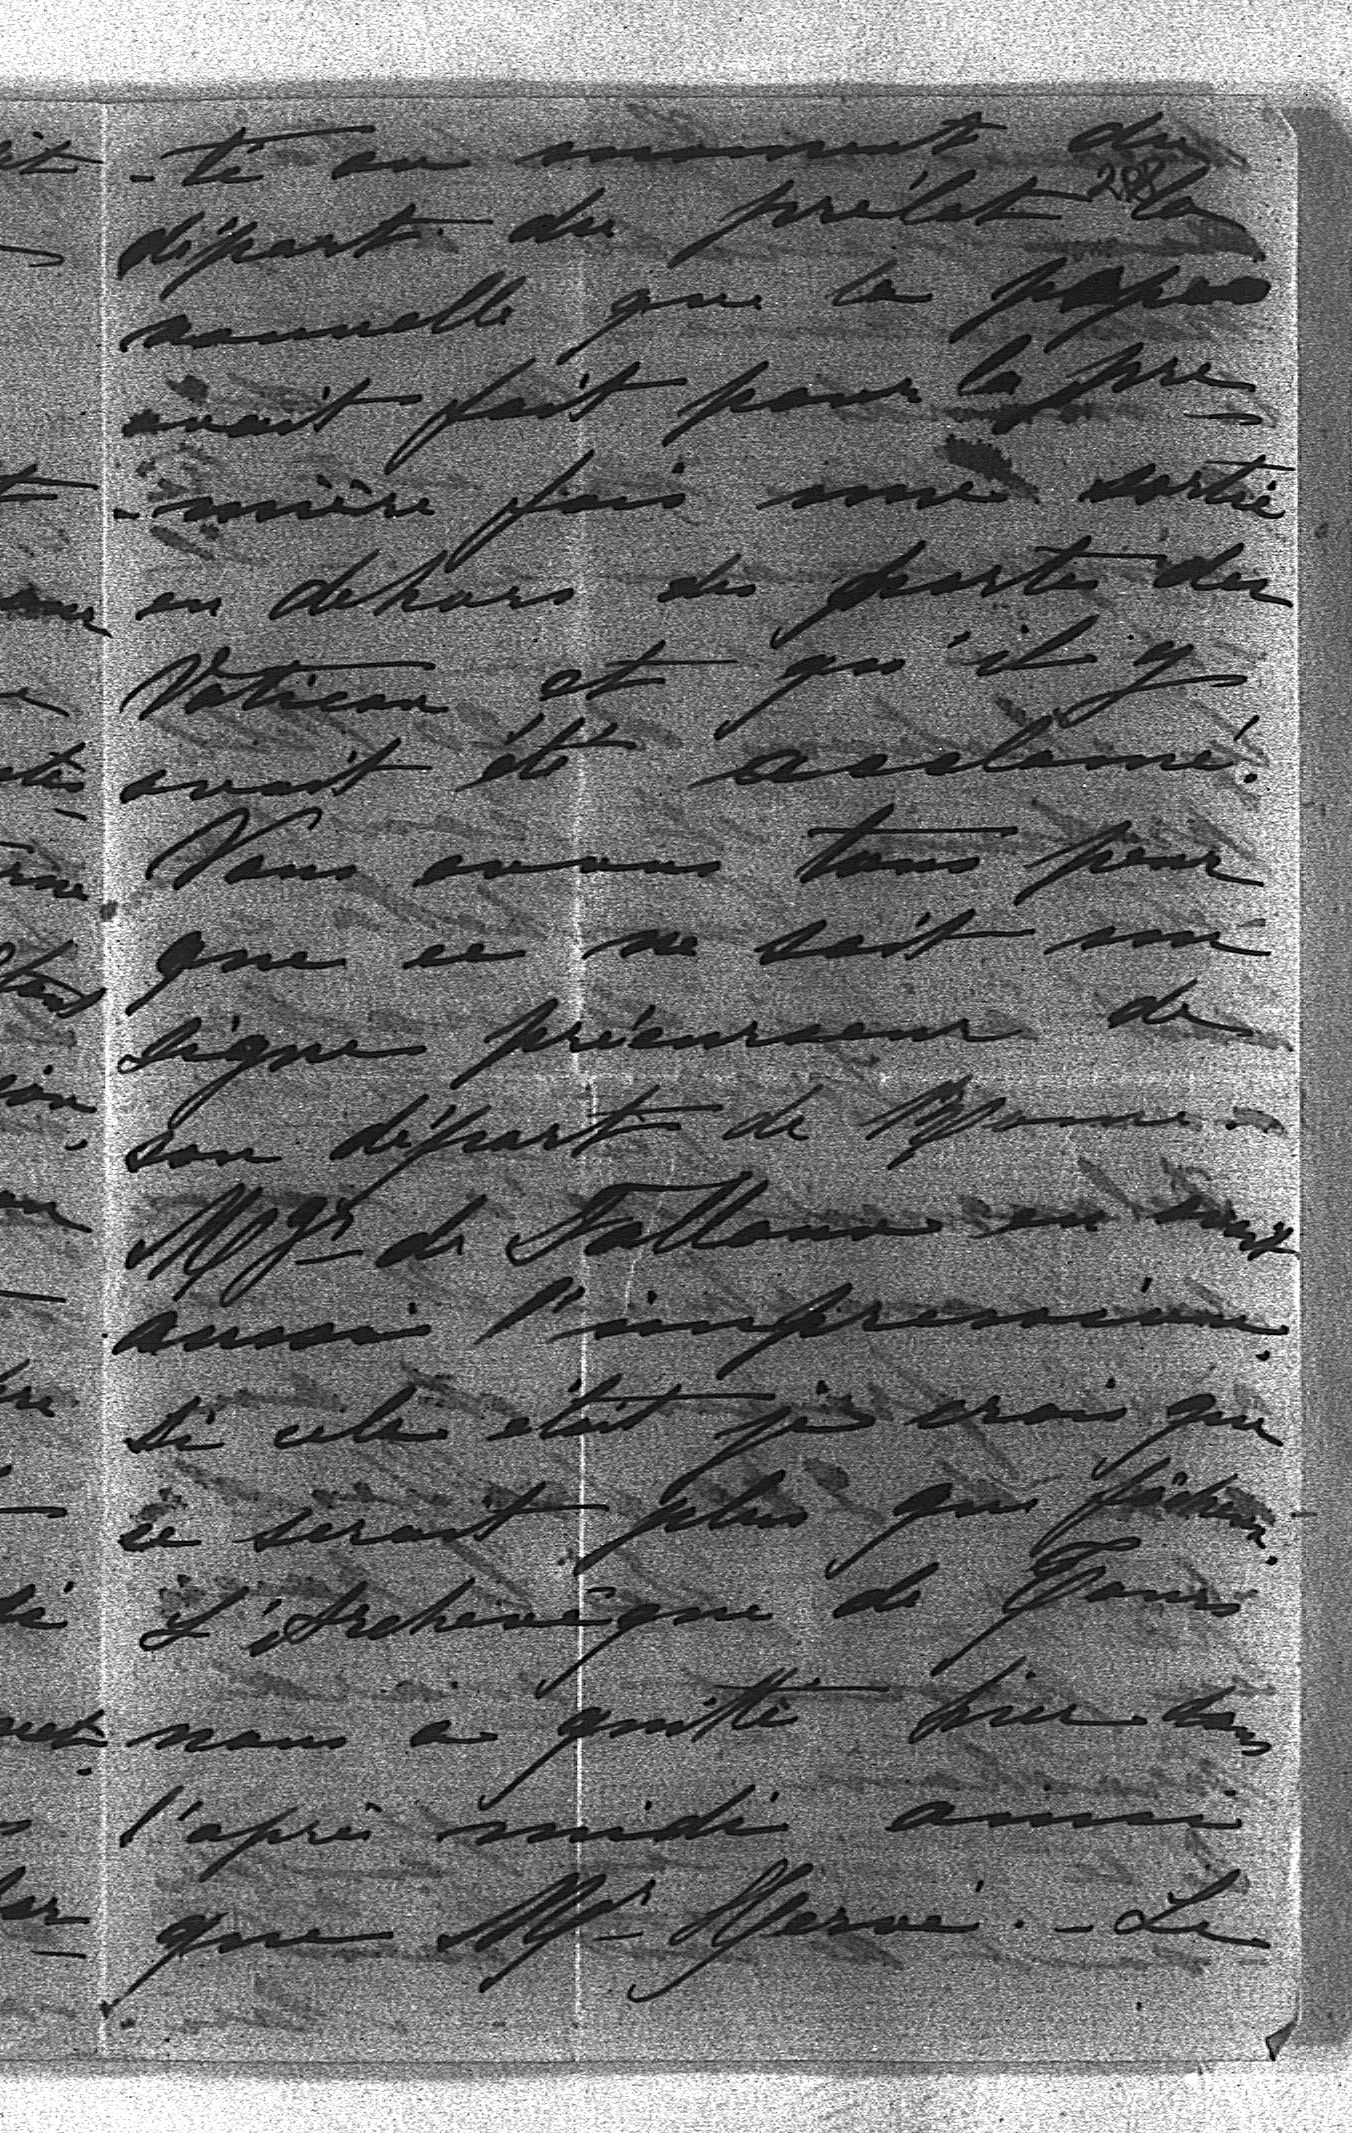 -té au moment du
208
départ du prélat la
nouvelle que le pape
avait fait pour la pre
-mière fois une sortie
en dehors des portes du
Vatican et qu'il y
avait été acclamé.
Nous avons tous peur
que ce ne soit un
signe précurseur de
son départ de Rome.
Mgr de Falloux en a
aussi l'impression.
Si cela était je crois que
ce serait plus que fâcheux.
L'Archevêque de Tours
nous a quitté hier dans
l'après midi ainsi
que Mr Hervé. - Le